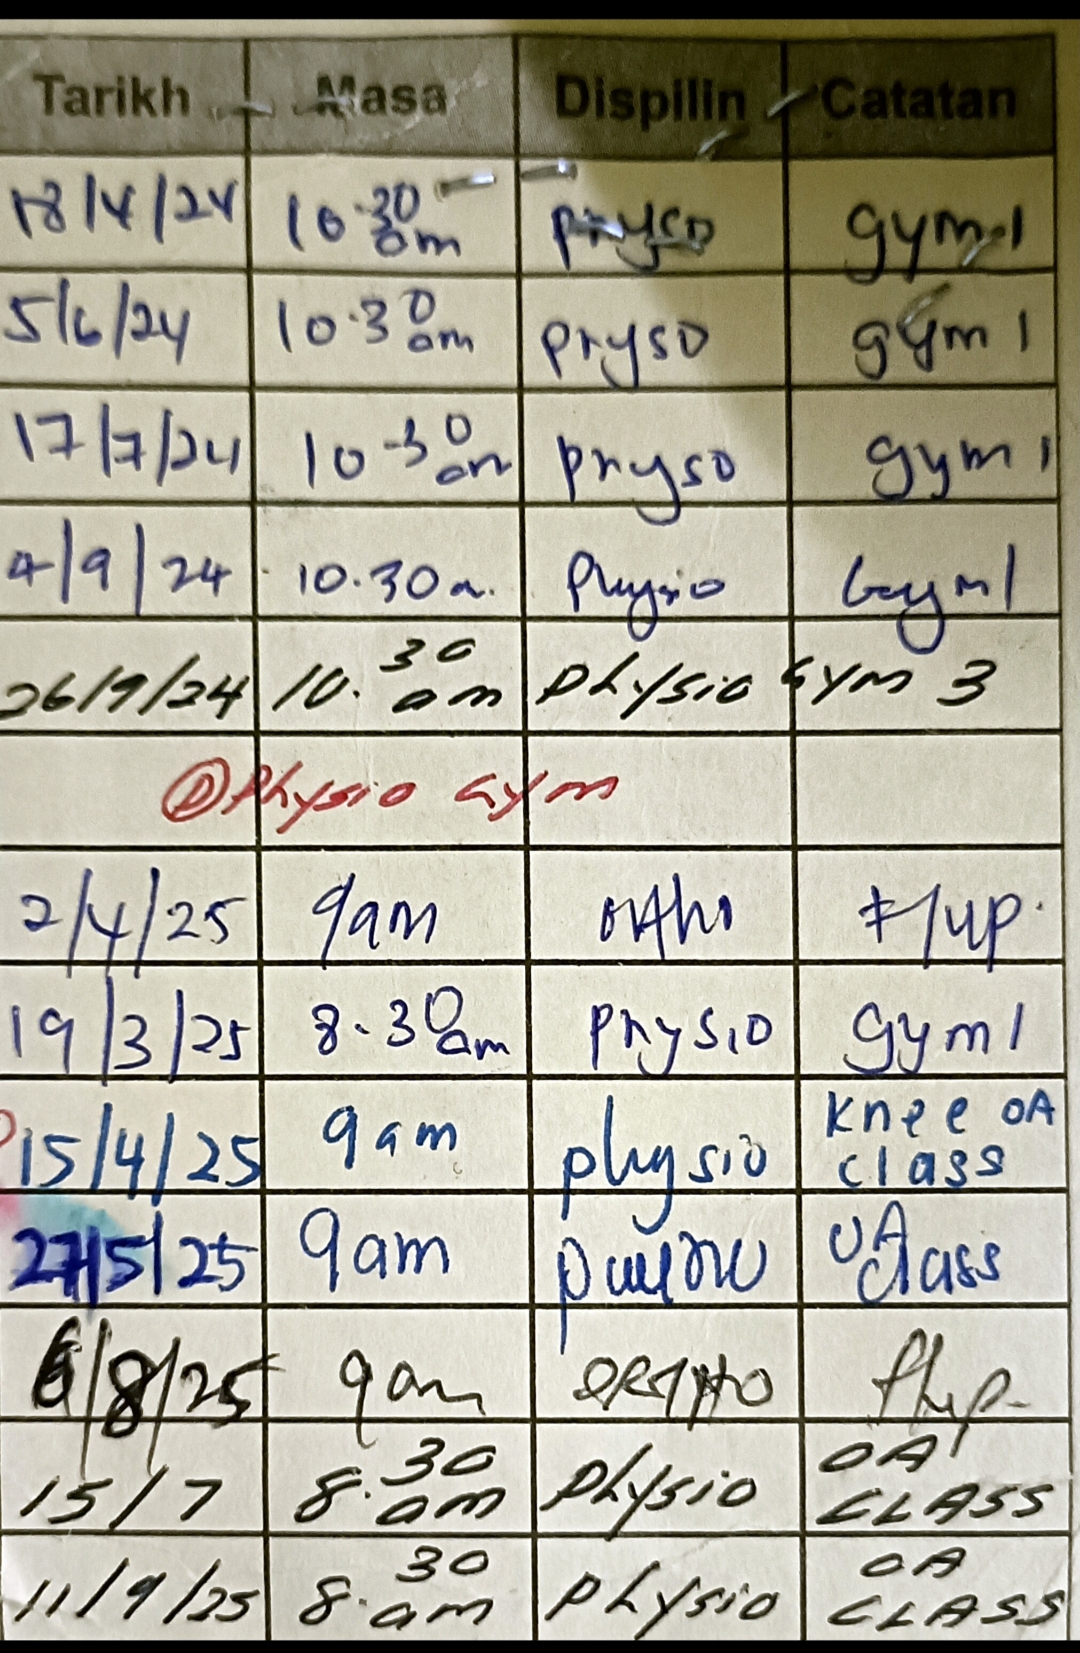 Tarikh Masa Dispilin Catatan
18/4/24 10.30am physo gym 1
5/6/24 10.30am physo gym 1
17/7/24 10.30am physo gym 1
4/9/24 10.30a. Physio Gym1
26/9/24 10.30am Physio Gym 3
Ⓓ Physio Gym
2/4/25 9am ortho F/up.
19/3/25 8.30am physio gym1
15/4/25 9am physio Knee OA class
27/5/25 9am OA class
6/8/25 9am ORTHO f/up.
15/7 8.30am Physio OA CLASS
11/9/25 8.30am Physio OA CLASS